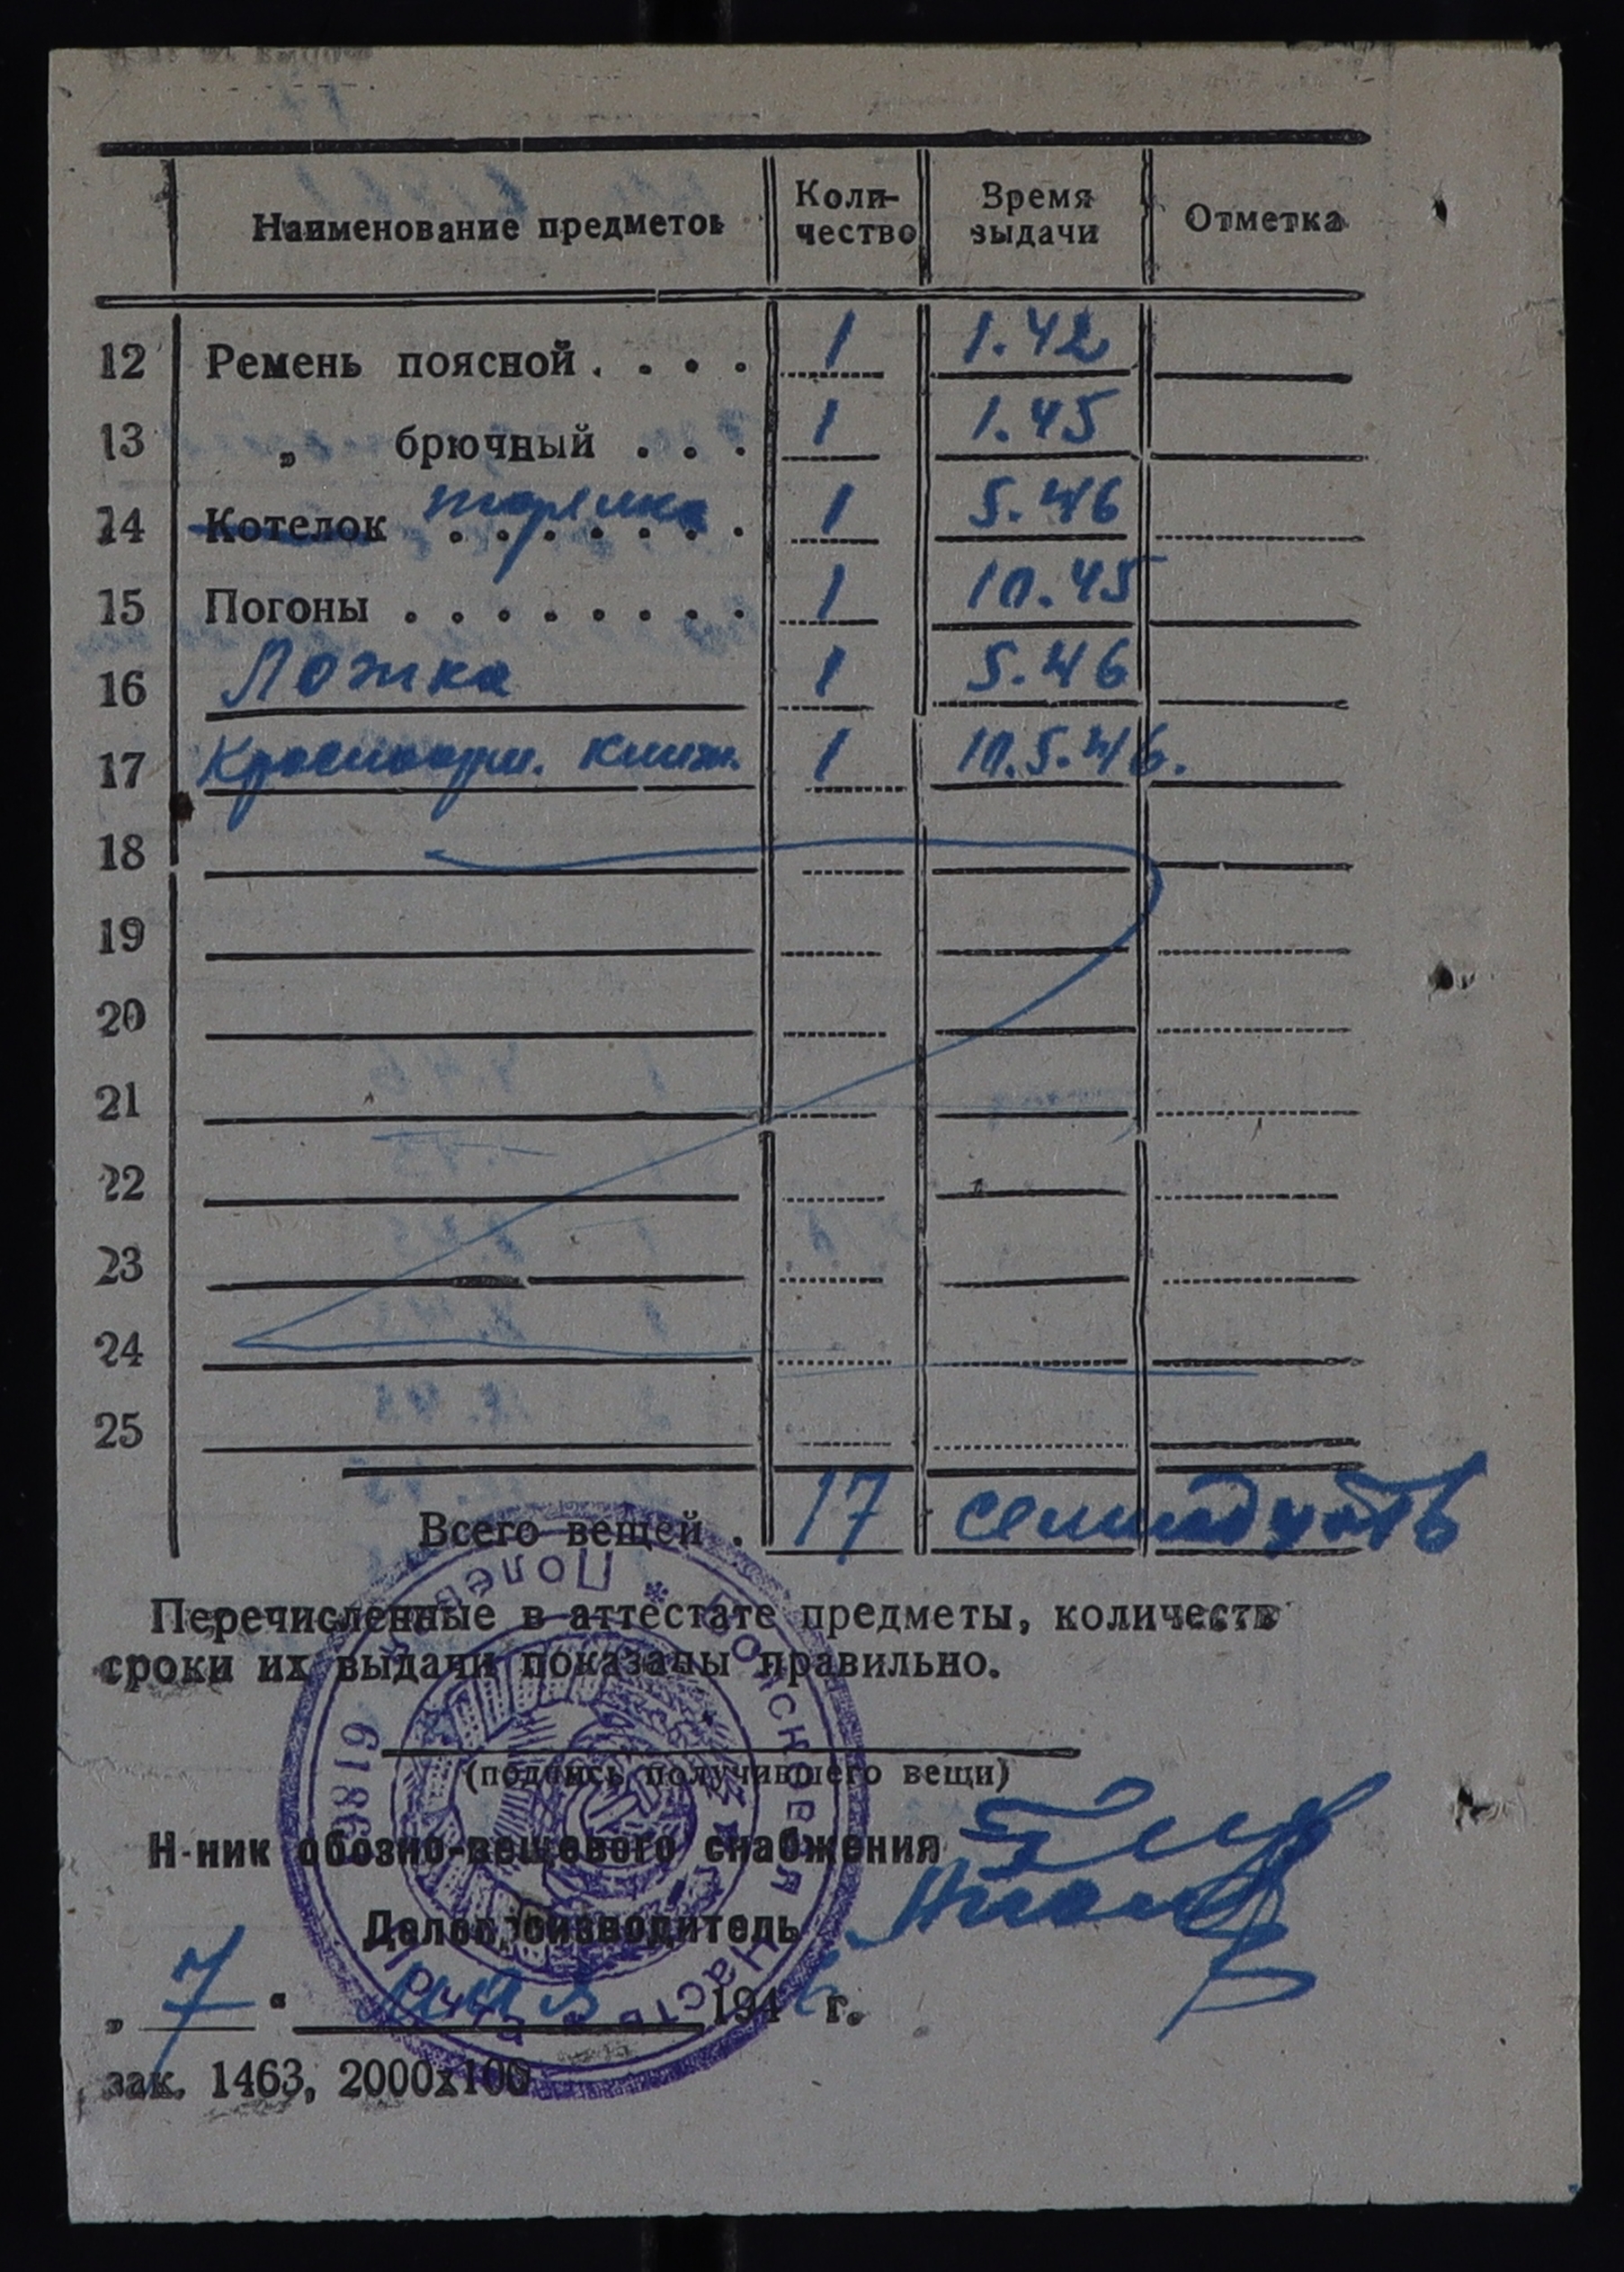 Наименование предметов Коли-чество Время выдачи Отметка
12 Ремень поясной . . . . 1 1.42
13 „ брючный . . . 1 1.45
14 Котелок тарелка . . . . . . . 1 5.46
15 Погоны . . . . . . . . 1 10.45
16 Ложка 1 5.46
17 Красноарм. книж. 1 10.5.46.
18
19
20
21
22
23
24
25
Всего вещей . 17 семнадцать
Перечисленные в аттестате предметы, количеств
сроки их выдачи показаны правильно.
(подпись получившего вещи)
Н-ник обозно-вещевого снабжения
Делопроизводитель
„ 7 " мая 1946 г.
зак. 1463, 2000х100
Войсковая Часть Полевая 61866